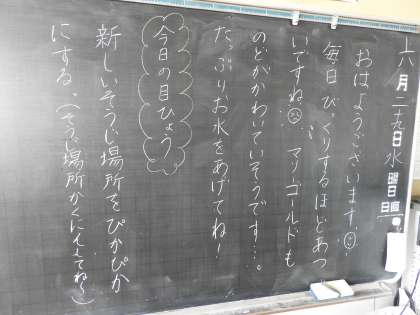 六月二九日水曜日
日直
おはようございます。
毎日びっくりするほどあつ
いですね。マリーゴールドも
のどがかわいていそうです…。
たっぷりお水をあげてね!
今日の目ひょう
新しいそうじ場所をぴかぴか
にする。(そうじ場所かくにんしてね〜)